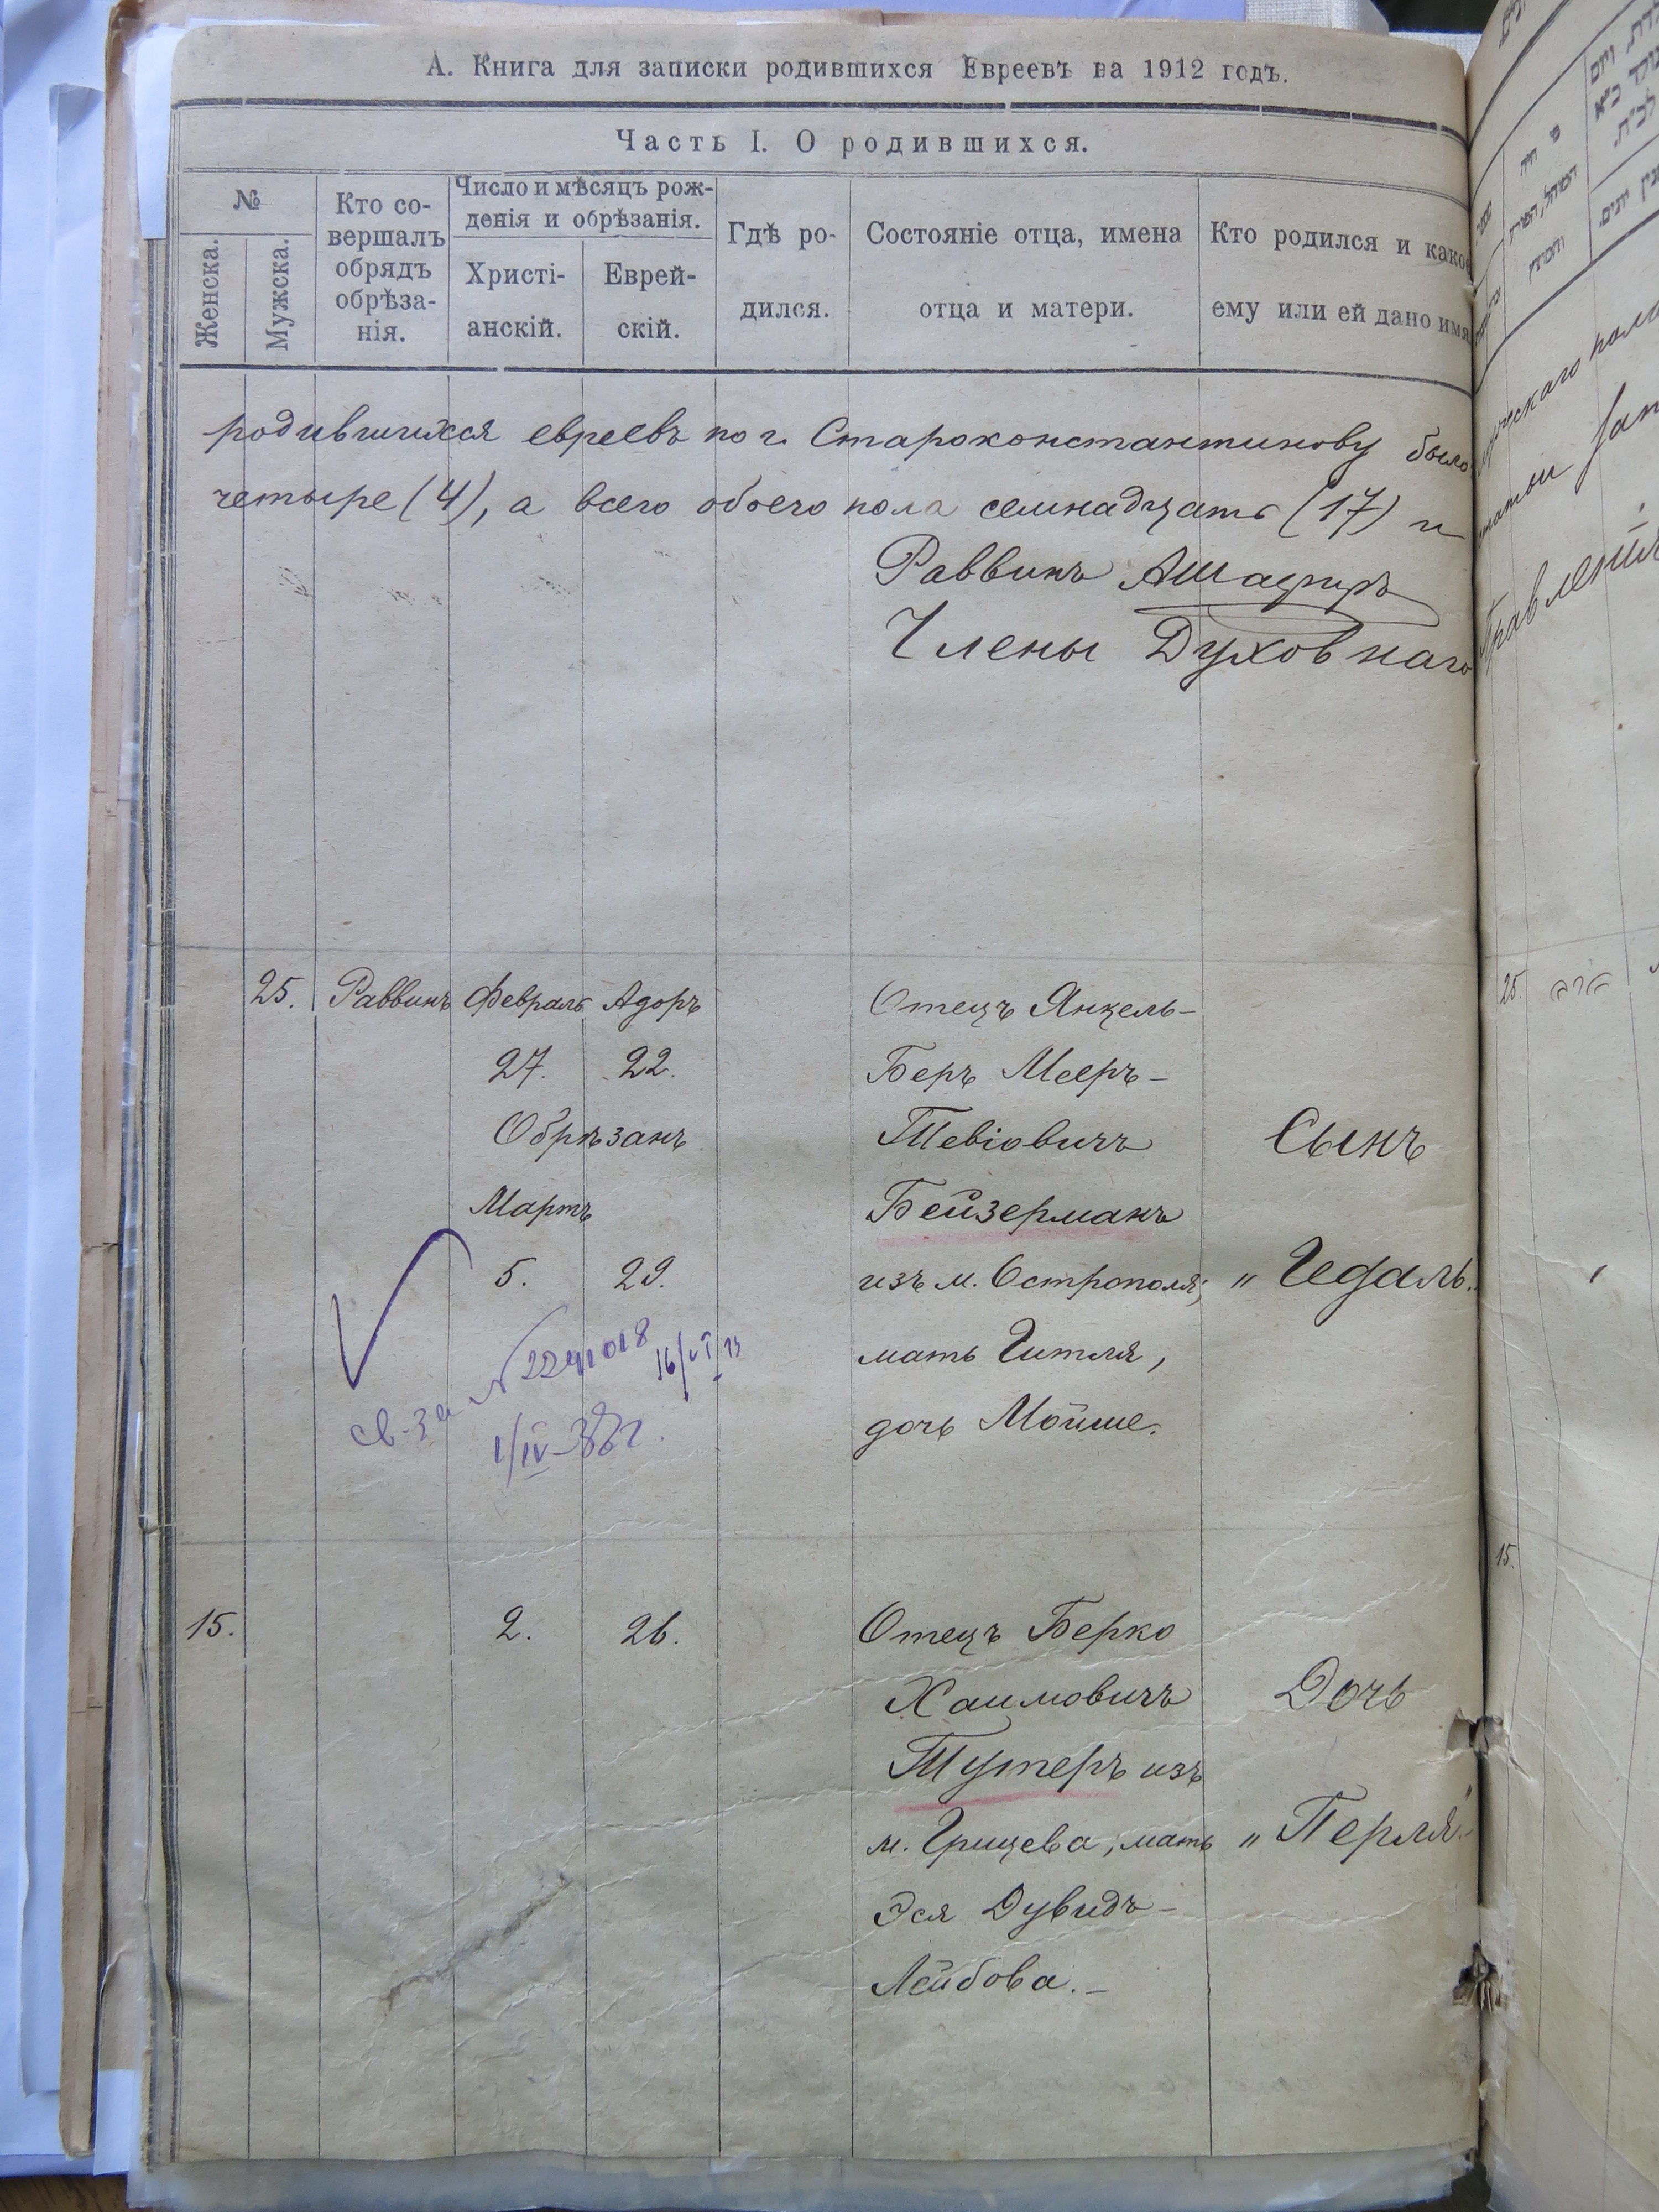 А. Книга для записки родившихся Евреевъ на 1912 годъ.
Часть I. О родившихся.
№
Женска.
Мужска.
Кто со-
вершалъ
обрядъ
обрѣза-
нія.
Число и мѣсяцъ рож-
денія и обрѣзанія.
Христі-
анскій.
Еврей-
скій.
Гдѣ ро-
дился.
Состояніе отца, имена
отца и матери.
Кто родился и какое
ему или ей дано имя
родившихся евреевъ по г. Староконстантинову было
четыре (4), а всего обоего пола семнадцать (17) и
Раввинъ АШафиръ
Члены Духовнаго
25. Раввинъ Февраль Адоръ
27. 22.
Обрѣзанъ
Мартъ
5. 29.
Отецъ Янкель-
Беръ Мееръ-
Тевіовичъ
Бейзерманъ
изъ м. Острополя;
мать Гитля,
дочь Мойше.
Сынъ
„Гедаль.
св-за №2241018
16/VI/13
1/IV-38г.
15. 2. 26.
Отецъ Берко
Хаимовичъ
Тутеръ изъ
м. Грицева, мать
Эся Дувидъ-
Лейбова.-
Дочь
„Перля"
25.
15.